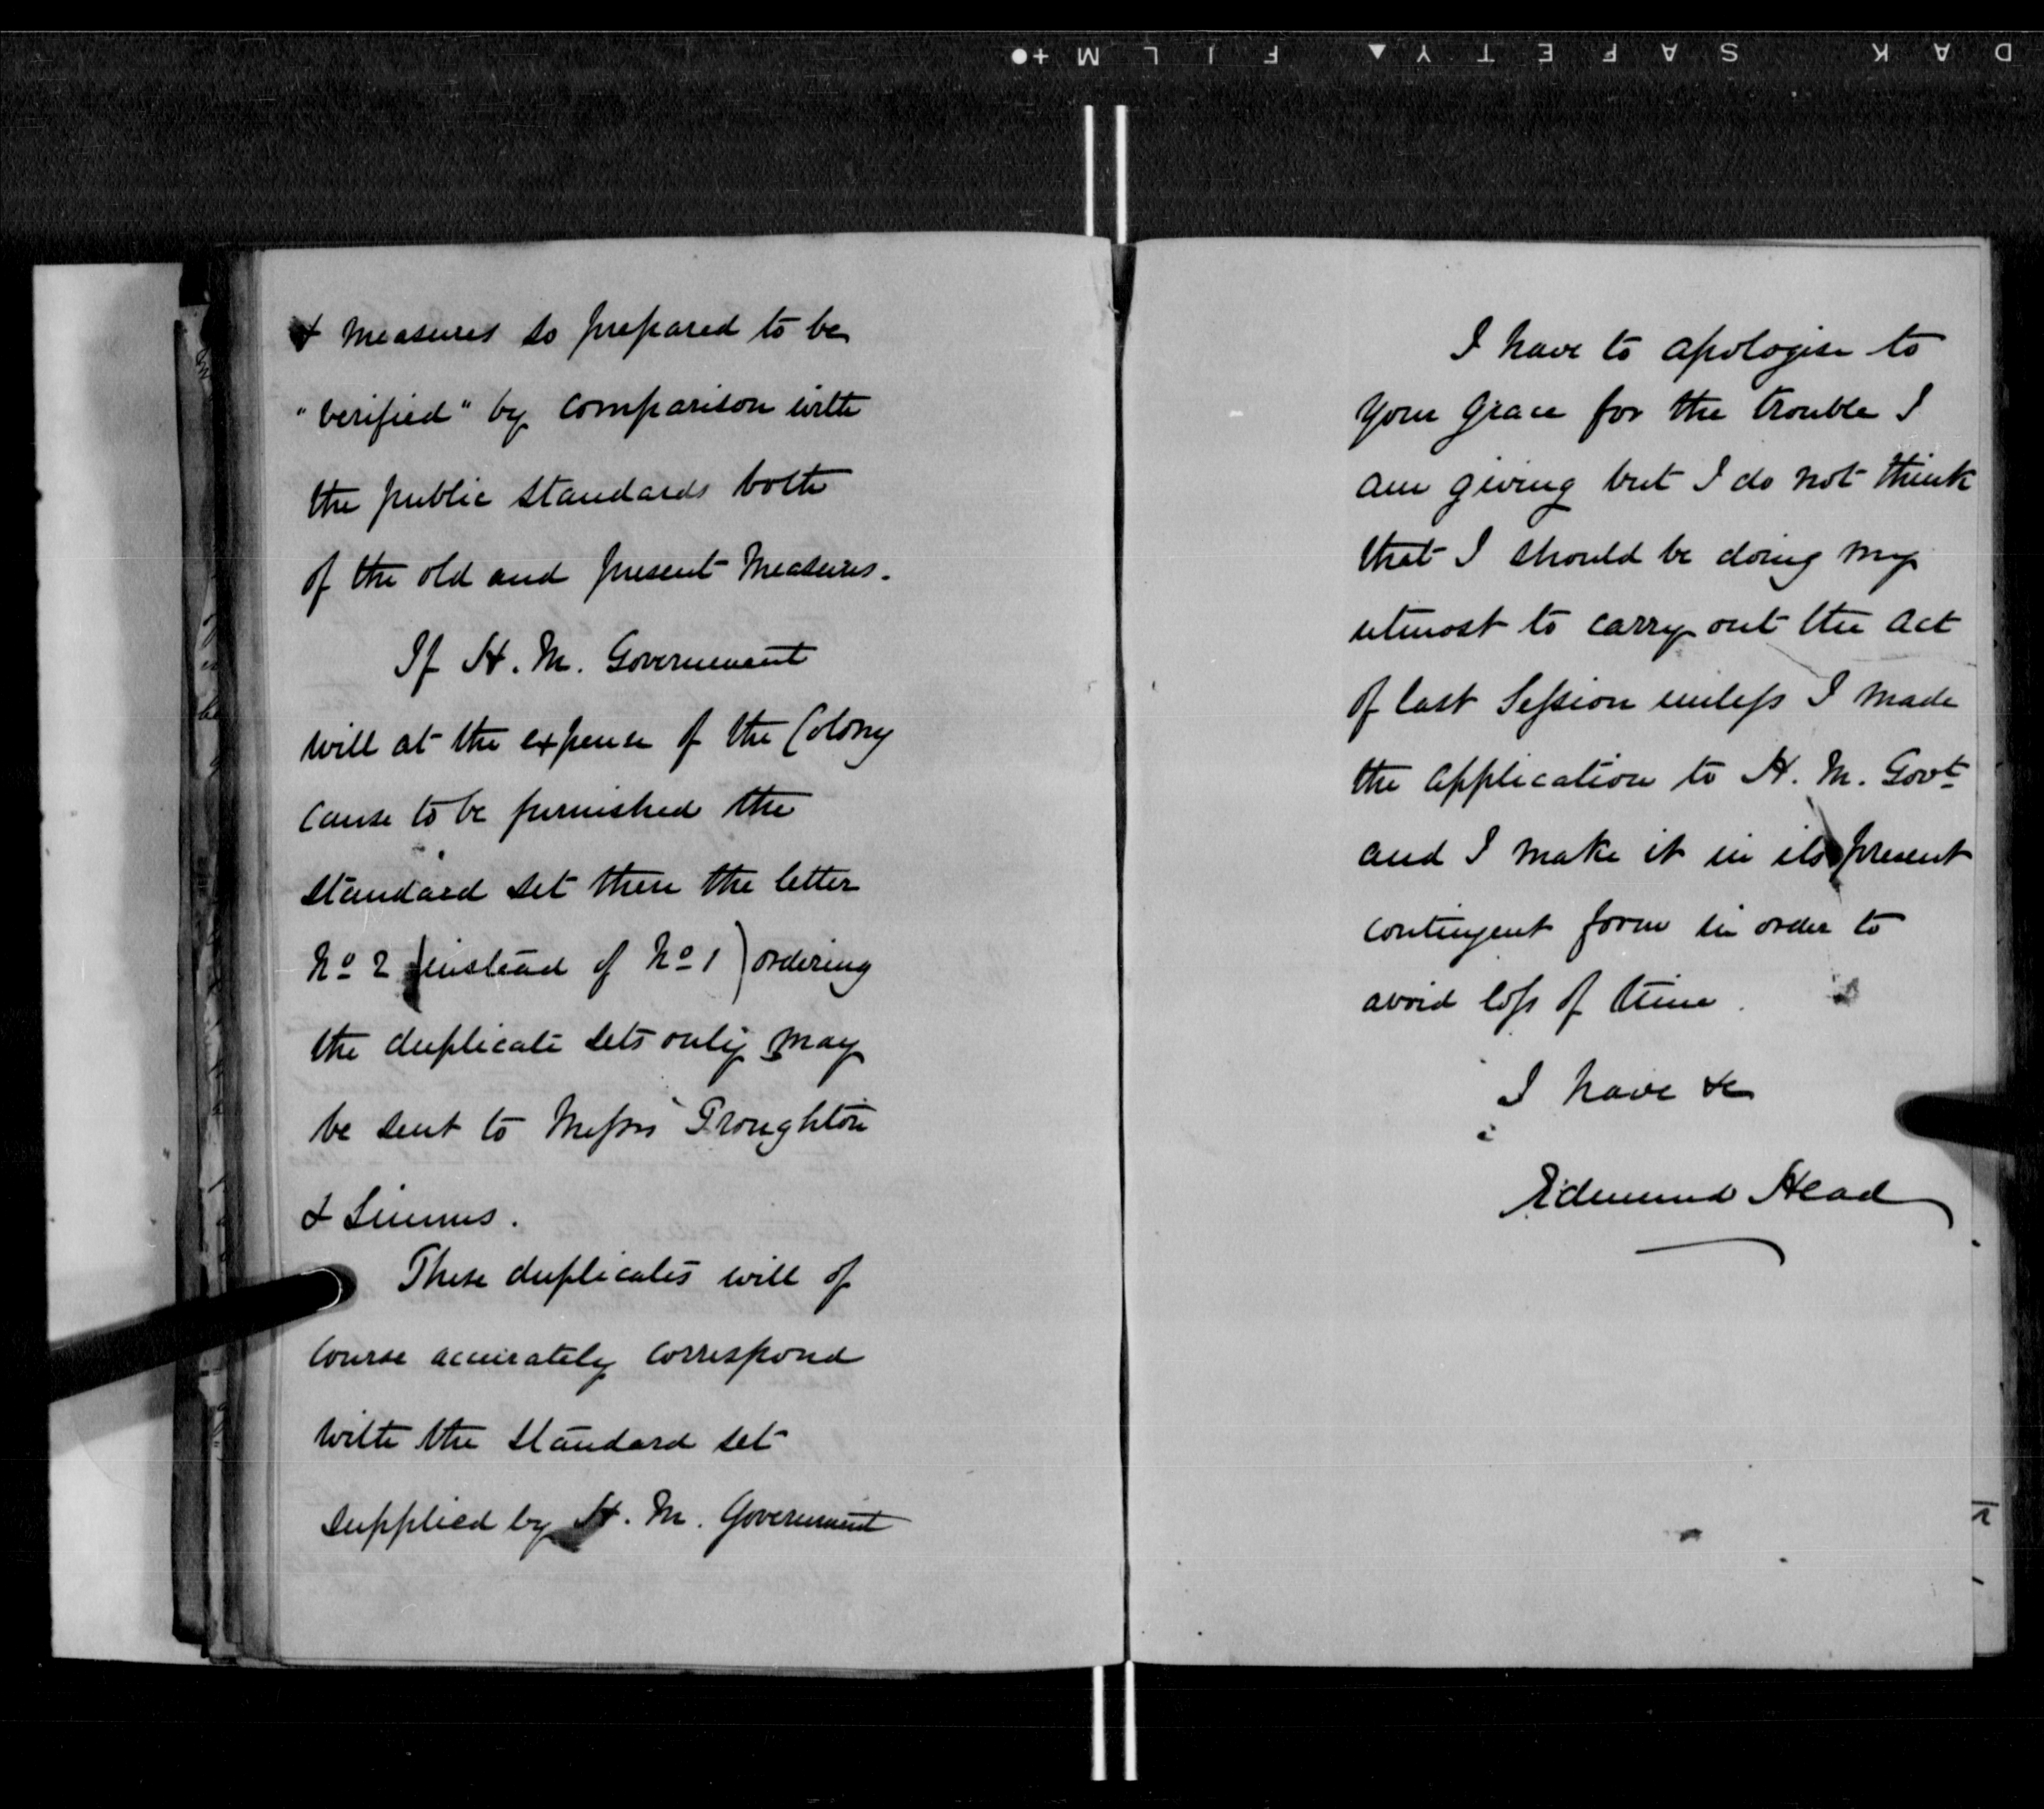 DAK SAFETY▲ FILM +●
& Measures so prepared to be
"verified" by comparison with
the public Standards both
of the old and present Measures.
If H. M. Government
will at the expense of the Colony
cause to be furnished the
Standard set then the letter
No 2 (instead of No 1) ordering
the duplicate sets only may
be sent to Messrs Troughton
& Simms.
These duplicates will of
course accurately correspond
with the Standard set
supplied by H. M. Government
I have to apologise to
your Grace for the trouble I
am giving but I do not think
that I should be doing my
utmost to carry out the Act
of last Session unless I made
the application to H. M. Govt
and I make it in its present
contingent form in order to
avoid loss of time.
I have &c
Edmund Head